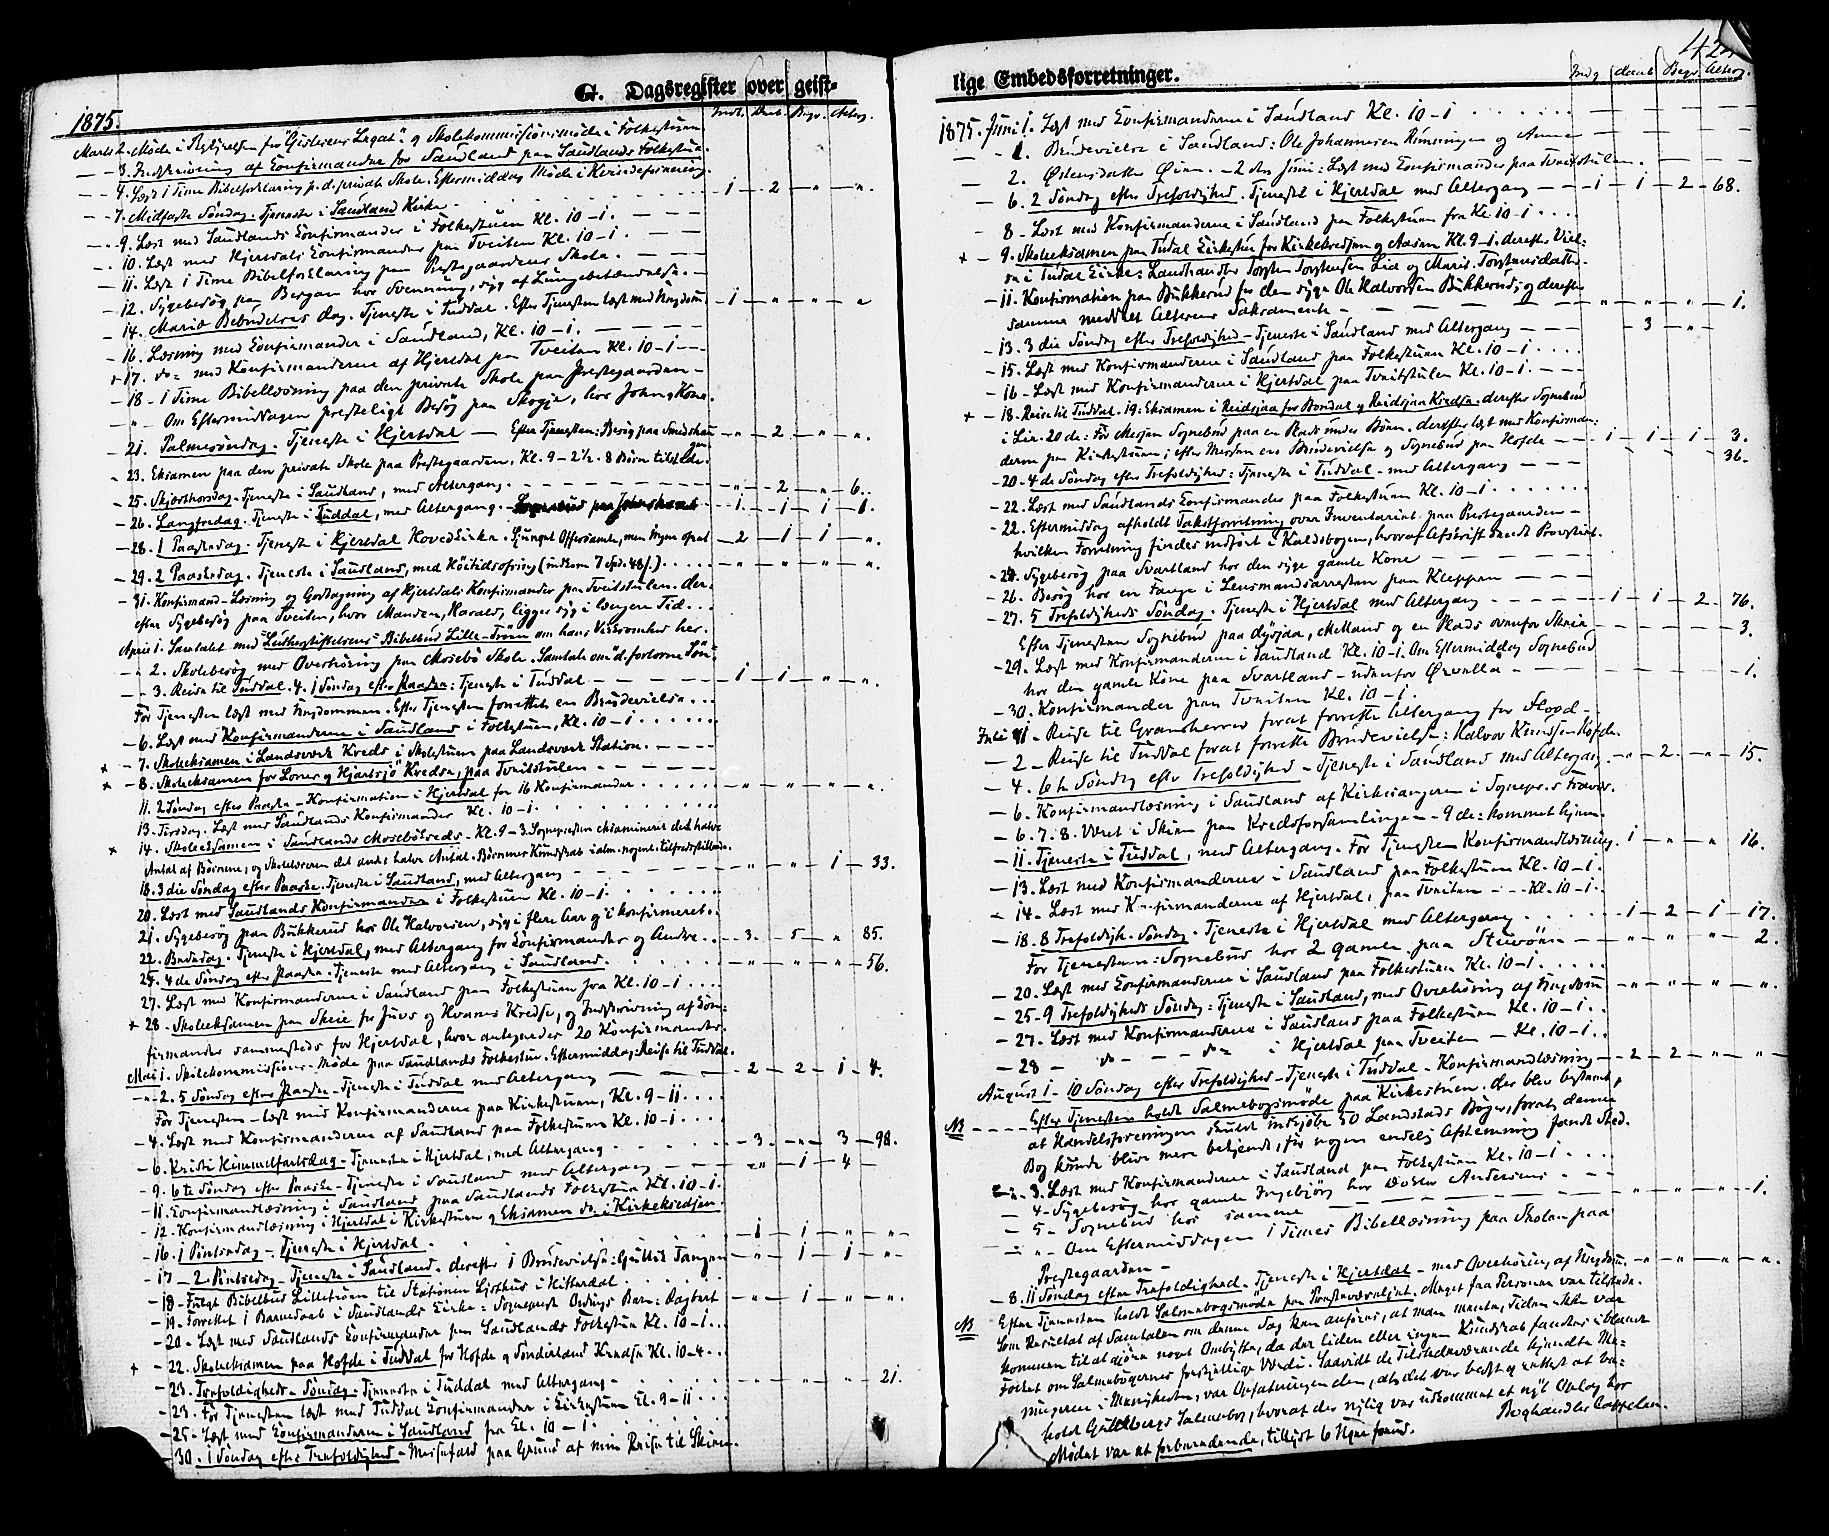 G. Dagsregister over geist-
1875.
Indt. Døbt. Begr. Alterg.
Marts 2. Møde i Bestyrelsen for "Gisleruds Legat" og Skolekommissionsmøde i Folkestuen
3. Indskrivning af Confirmander for Saudland paa Saudlands Folkestue.
4. Læst 1 Time Bibelforklaring p. d. private Skole. Eftermiddag Møde i
7. Midfaste Søndag. Tjeneste i Saudland Kirke - 1 - 2 - " - ".
9. Læst med Saudlands Confirmander i Folkestuen Kl. 10-1.
10. Læst med Hjertdals Confirmander paa Tveiten Kl. 10-1.
11. Læst 1 Time Bibelforklaring paa Prestegaardens Skole.
12. Sygebesøg paa Bergan hos Svenning, syg af Lungebetændelse.
14. Mariæ Bebudelses dag. Tjeneste i Tuddal. Efter Tjenesten læst med Ungdom. - 1 - " - " - "
16. Læsning med Confirmander i Saudland, Kl. 10-1.
17. do = med Konfirmanderne af Hjertdal paa Tveiten Kl. 10-1
18 - 1 Time Bibellæsning paa den private Skole paa Prestegaarden -
" - Om Eftermiddagen presteligt Besøg paa Skogje, hos John's Kone.
21. Palmesøndag. Tjeneste i Hjertdal - Efter Tjenesten: Besøg paa - " - 2 - " - ".
23. Eksamen paa den private Skole paa Prestegaarden, Kl. 9-2½. 8 Børn tilstede.
25. Skjærthorsdag. Tjeneste i Saudland, med Altergang. - " - 2 - " - 6.
26. Langfredag. Tjeneste i Tuddal, med Altergang. - 1 - 1 - 1 - 1.
28. 1 Paaskedag. Tjeneste i Hjertdal Hovedkirke. Sjunget Offersamle, men Ingen ofret - 2 - 1 - 1 - ".
29. 2 Paaskedag. Tjeneste i Saudland, med Høitidsofring (indkom 7 Spd. 48 ß.)
31. Konfirmand-Læsning og Godtagning af Hjertdals Konfirmander paa Tveitstulen. der-
efter Sygebesøg paa Tveiten, hvor Manden, Harald, ligger syg i længere Tid...
April 1. Samtalet med "Lutherstiftelsens" Bibelbud Lille-Trøen om hans Virksomhed her.
2. Skolebesøg med Overhøring paa Mosebø Skole. Samtale om "d. fortorne Søn."
3. Reise til Tuddal. 4. 1 Søndag efter Paaske: Tjeneste i Tuddal - 1 - 1 - " - ".
Før Tjenesten læst med Ungdommen. Efter Tjenesten forrettet en Brudevielse...
6. Læst med Konfirmanderne i Saudland i Folkestuen, Kl. 10-1
7. Skoleeksamen i Landsverk Kreds i Skolestuen paa Landsverk Station.
8. Skoleeksamen for Lonar og Hjartsjø Kredse, paa Tveitstulen
11. 2 Søndag efter Paaske - Konfirmation i Hjertdal for 16 Konfirmander
13. Tirsdag. Læst med Saudlands Konfirmander Kl. 10-1.
14. Skoleeksamen i Saudlands Mosebø Kreds - Kl. 9-3. Sognepresten eksaminerte det halve
Antal af Børnene, og Skolelæreren det andet halve Antal. Børnenes Kundskab i alm. nogenl. tilfredsstillende.
18. 3 die Søndag efter Paaske. Tjeneste i Saudland, med Altergang - " - " - 1 - 33.
20. Læst med Saudlands Konfirmander i Folkestuen Kl. 10-1.
21. Sygebesøg paa Bukkerud hos Ole Halvorsen, syg i flere Aar og ikonfirmeret.
22. Bededag. Tjeneste i Hjertdal, med Altergang for Confirmander og Andre. - 3. - 5 - " - 85.
25. 4 de Søndag efter Paaske. Tjeneste med Altergang i Saudland. - " - " - " - 56.
27. Læst med Konfirmanderne i Saudland paa Folkestuen fra Kl. 10-1
28. Skoleeksamen paa Skeie for Juvs og Hvaares Kredse, og Indskrivning af Con-
firmander sammesteds for Hjertdal, hvor antegnedes 20 Konfirmander.
Mai 1. Skolekommissions-Møde paa Saudlands Folkestue. Eftermiddag: Reise til Tuddal.
2. 5 Søndag efter Paaske - Tjeneste i Tuddal med Altergang - 2 - 2 - 1 - 4.
Før Tjenesten - læst med Konfirmanderne paa Kirkestuen, Kl. 9-11
4. Læst med Konfirmanderne af Saudland paa Folkestuen Kl. 10-1
6. Kristi Himmelfartsdag - Tjeneste i Hjertdal, med Altergang - 3 - " - 3 - 98.
9. 6te Søndag efter Paaske - Tjeneste i Saudland med Altergang - " - 1 - 4 -
11. Confirmandlæsning i Saudland paa Saudlands Folkestue Kl. 10-1.
12. Konfirmandlæsning i Hjertdal i Kirkestuen og Eksamen do. i Kirkekredsen.
16. 1 Pintsedag - Tjeneste i Hjertdal. - 1 - 1 - " - "
17 - 2 Pintsedag - Tjeneste i Saudland. derefter 1 Brudevielse: Gullik Tangen - " - 1 - 1 - "
18 - Fulgt Bibelbud Lilletrøen til Stationen Ljosthus i Hitterdal
19 - Forrettet 1 Barnedaab i Saudlands Kirke: Sogneprest Ordings Barn: Dagbert - " - 1 - " - ".
20 - Læst med Saudlands Confirmander paa Saudlands Folkestue Kl. 10-1
22. Skoleeksamen paa Hofde i Tuddal for Hofde og Sønderland Kredse Kl. 10-4
23. Trefoldigheds-Søndag. Tjeneste i Tuddal med Altergang - 21.
23. Før Tjenesten læst med Tuddal Confirmander i Kirkestuen Kl. 9-11
25 - Læst med Confirmanderne i Saudland fra Kl. 10-1
30. 1 Søndag efter Trefoldighed - Messefald paa Grund af min Reise til Skien.
lige Embedsforretninger.
Indg. Døbt Begr. Alterg.
1875. Juni 1. Læst med Confirmanderne i Saudland Kl. 10-1
1. Brudevielse i Saudland: Ole Johannesen Rønningen og Anne
2. Østensdatter - 2 den Juni: Læst med Confirmander paa Tveitstulen.
6. 2 Søndag efter Trefoldighed. Tjeneste i Hjertdal med Altergang - 1 - 1 - 2 - 68.
8 - Læst med Konfirmanderne i Saudland paa Folkestuen fra Kl 10-1
9. Skoleeksamen paa Tudal Kirkestue for Kirkekredsen og Aasen Kl. 9-1. derefter Viel-
se i Tudal Kirke: Landhandler Torsten Torstensen Lia og Marie Torstensdatter
11. Konfirmation paa Bukkerud for den syge Ole Halvorsen Bukkerud; og derefter
samme meddelt Alterens Sakramente - " - " - " - 1.
13. 3 die Søndag efter Trefoldighed - Tjeneste i Saudland med Altergang - 3 - "
15. Læst med Konfirmanderne i Saudland paa Folkestuen Kl. 10-1
16 - Læst med Konfirmanderne i Hjertdal paa Tveitstulen Kl. 10-1.
18. Reise til Tuddal. 19: Eksamen i Reidsjaa for Bondal og Reidsjaa Kredse. derefter Sognebud
i Lia. 20 de: Før Messen Sognebud paa en Plads under Bøen. derefter læst med Konfirman-
derne paa Kirkestuen; efter Messen en Brudevielse og Sognebud paa Hofde - 1 - 1 - 1 - 3.
20 - 4 de Søndag efter Trefoldighed: Tjeneste i Tuddal - med Altergang - 36.
22. Læst med Saudlands Confirmander paa Folkestuen Kl. 10-1
22. Eftermiddag afholdt Takstforretning over Inventariet paa Prestegaarden -
hvilken Forretning findes indført i Kaldsbogen, hvoraf Afskrift sendt Provsten.
24. Sygebesøg paa Svartland hos den syge gamle Kone
26. Besøg hos en Fange i Lensmandsarresten paa Kleppen
27. 5 Trefoldigheds Søndag. Tjeneste i Hjertdal med Altergang - 1 - 1 - 2 - 76.
Efter Tjenesten Sognebud paa Mælland og en Plads ovenfor Skeie - 3.
29. Læst med Konfirmanderne i Saudland Kl. 10-1. Om Eftermiddag Sognebud
hos den gamle Kone paa Svartland - udenfor Ørvella - 1.
30. Konfirmander paa Tveiten Kl. 10-1.
Juli 1 - Reise til Gransherred forat forrette Altergang for Flood -
2 - Reise til Tuddal forat forrette Brudevielse: Halvor Knudsen Hofde.
4. 6te Søndag efter Trefoldighed - Tjeneste i Saudland med Altergang. - " - 2 - " - 15.
6. Konfirmandlæsning i Saudland af Kirkesangeren i Sognepr.s Fravær.
6. 7. 8. Været i Skien paa Kredsforsamlingen - 9 de: kommet hjem.
11. Tjeneste i Tuddal, med Altergang. Før Tjenesten Konfirmandlæsning. 1 - " - " - 16.
13. Læst med Konfirmanderne i Saudland paa Folkestuen Kl. 10-1.
14 - Læst med Konfirmanderne af Hjertdal, paa Tveiten - Kl. 10-1.
18. 8 Trefoldigh. Søndag. Tjeneste i Hjertdal med Altergang - 1 - 2 - 1 - 17.
Før Tjenesten: Sognebud hos 2 gamle paa - " - " - " - 2.
20. Læst med Confirmanderne i Saudland paa Folkestuen Kl. 10-1.
25 - 9 Trefoldigheds Søndag: Tjeneste i Saudland, med Overhøring af Ungdom - " - " - " - ".
27. Læst med Confirmanderne i Saudland paa Folkestuen Kl. 10-1.
28 - do - - do = i Hjertdal paa Tveiten - Kl. 10-1.
August 1 - 10 Søndag efter Trefoldighed - Tjeneste i Tuddal - Konfirmandlæsning - 2 - 2 - " - "
NB Efter Tjenesten holdt Salmebogsmøde paa Kirkestuen. der blev bestemt,
at Handelsforeningen skulde indkjøbe 50 Landstads Bøger, forat denne
Bog kunde blive mere bekjendt, før nogen endelig Afstemning fandt Sted.
3. Læst med Konfirmanderne i Saudland paa Folkestuen Kl. 10-1
4 - Sygebesøg hos gamle Ingebjørg hos Doktor Andersens
5 - Sognebud hos samme - " - " - " - 1.
" - Om Eftermiddagen 1 Times Bibellæsning paa Skolen paa
Prestegaarden -
8. 11 Søndag efter Trefoldighed. Tjeneste i Hjertdal - med Overhøring af Ungdom. - " - " - " - ".
NB Efter Tjenesten holdt Salmebogsmøde paa Presteværelset. Meget faa Personer var tilstede.
Som Resultat af Samtalen om denne Sag kan anføres, at man mente, Tiden ikke var
kommen til at gjøre noget Ombytte, da der liden eller ingen Kundskab fandtes iblandt
Folket om Salmebøgernes forskjellige Værdi. Saavidt de Tilstedeværende kjendte Me-
ningerne i Menigheden, var Opfatningen den, at det var bedst og rettest at be-
holde Guldbergs Salmebog, hvoraf der nylig var udkommet et nyt Oplag hos
Boghandler Cappelen.
Mødet var et forberedende, tillyst 6 Uger forud.